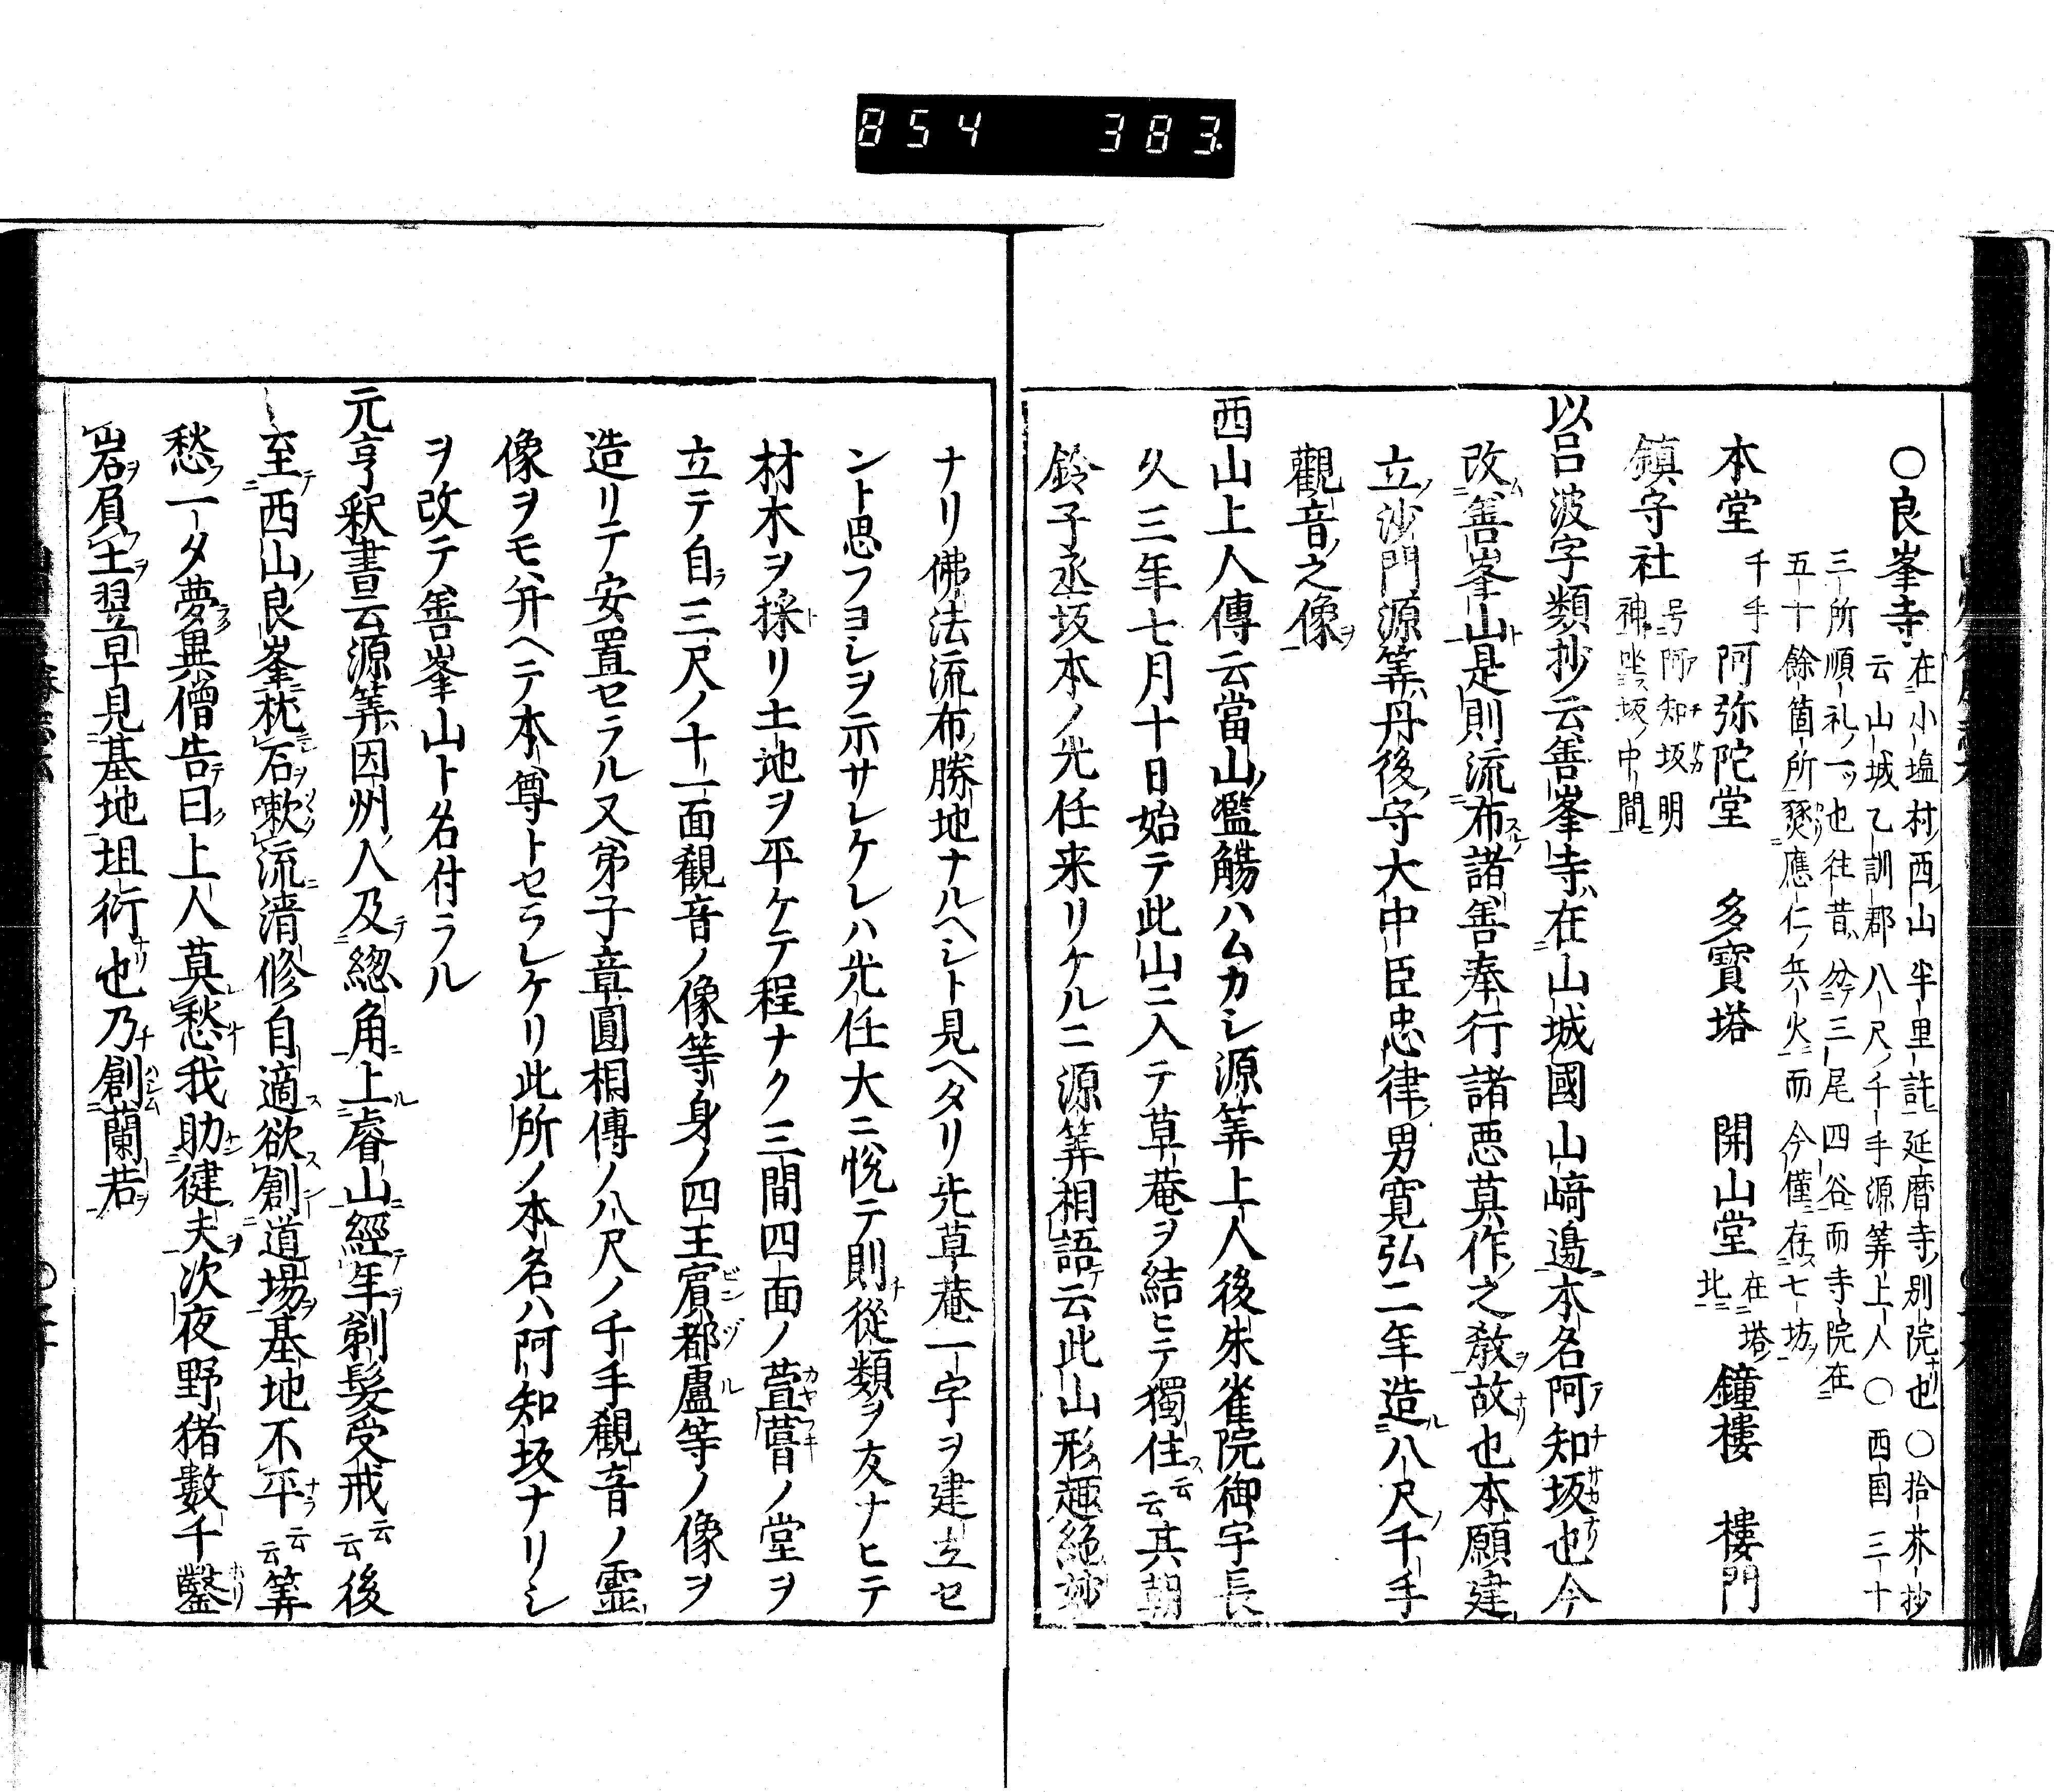 854 383
○良峯寺 在小塩村西山半里許延暦寺別院也○拾芥抄
云山城乙訓郡八尺千手源筭上人○西国三十
三所順礼ノ一ツ也往昔分テ三尾四谷而寺院在
五十餘箇所燹應仁ノ兵火而今僅存七坊
本堂 千手 阿弥陀堂 多寳塔 開山堂 在塔北 鐘樓 樓門
鎮守社 号阿知坂明神坐坂ノ中間
以呂波字類抄云善峯寺在山城國山﨑邉本名阿知坂也今
改善峯山是則流布諸善奉行諸悪莫作之教故也本願建
立沙門源筭丹後守大中臣忠律男寛弘二年造八尺千手
觀音之像
西山上人傳云當山ノ濫觴ハムカシ源筭上人後朱雀院御宇長
久三年七月十日始テ此山ニ入テ草菴ヲ結ヒテ獨住云云其朝
鈴子丞坂本ノ光任来リケルニ源筭相語テ云此山形趣絶妙
ナリ佛法流布勝地ナルヘシト見ヘタリ先草菴一宇ヲ建立セ
ント思フヨシヲ示サレケレハ光任大ニ悦テ則從類ヲ友ナヒテ
材木ヲ採リ土地ヲ平ケテ程ナク三間四面ノ萱葺ノ堂ヲ
立テ自三尺ノ十一面觀音ノ像等身ノ四王賓都盧等ノ像ヲ
造リテ安置セラル又弟子章圓相傳ノ八尺ノ千手觀音ノ霊
像ヲモ并ヘテ本尊トセラレケリ此所ノ本名ハ阿知坂ナリシ
ヲ改テ善峯山ト名付ラル
元亨釈書曰云源筭因州人及総角上睿山經年剃髪受戒云云後
至西山良峯枕石嗽流清修自適欲創道場基地不平云云筭
愁一夕夢異僧告曰上人莫愁我助健夫次夜野猪數千鑿
岩負土翌早見基地坦衍也乃創蘭若